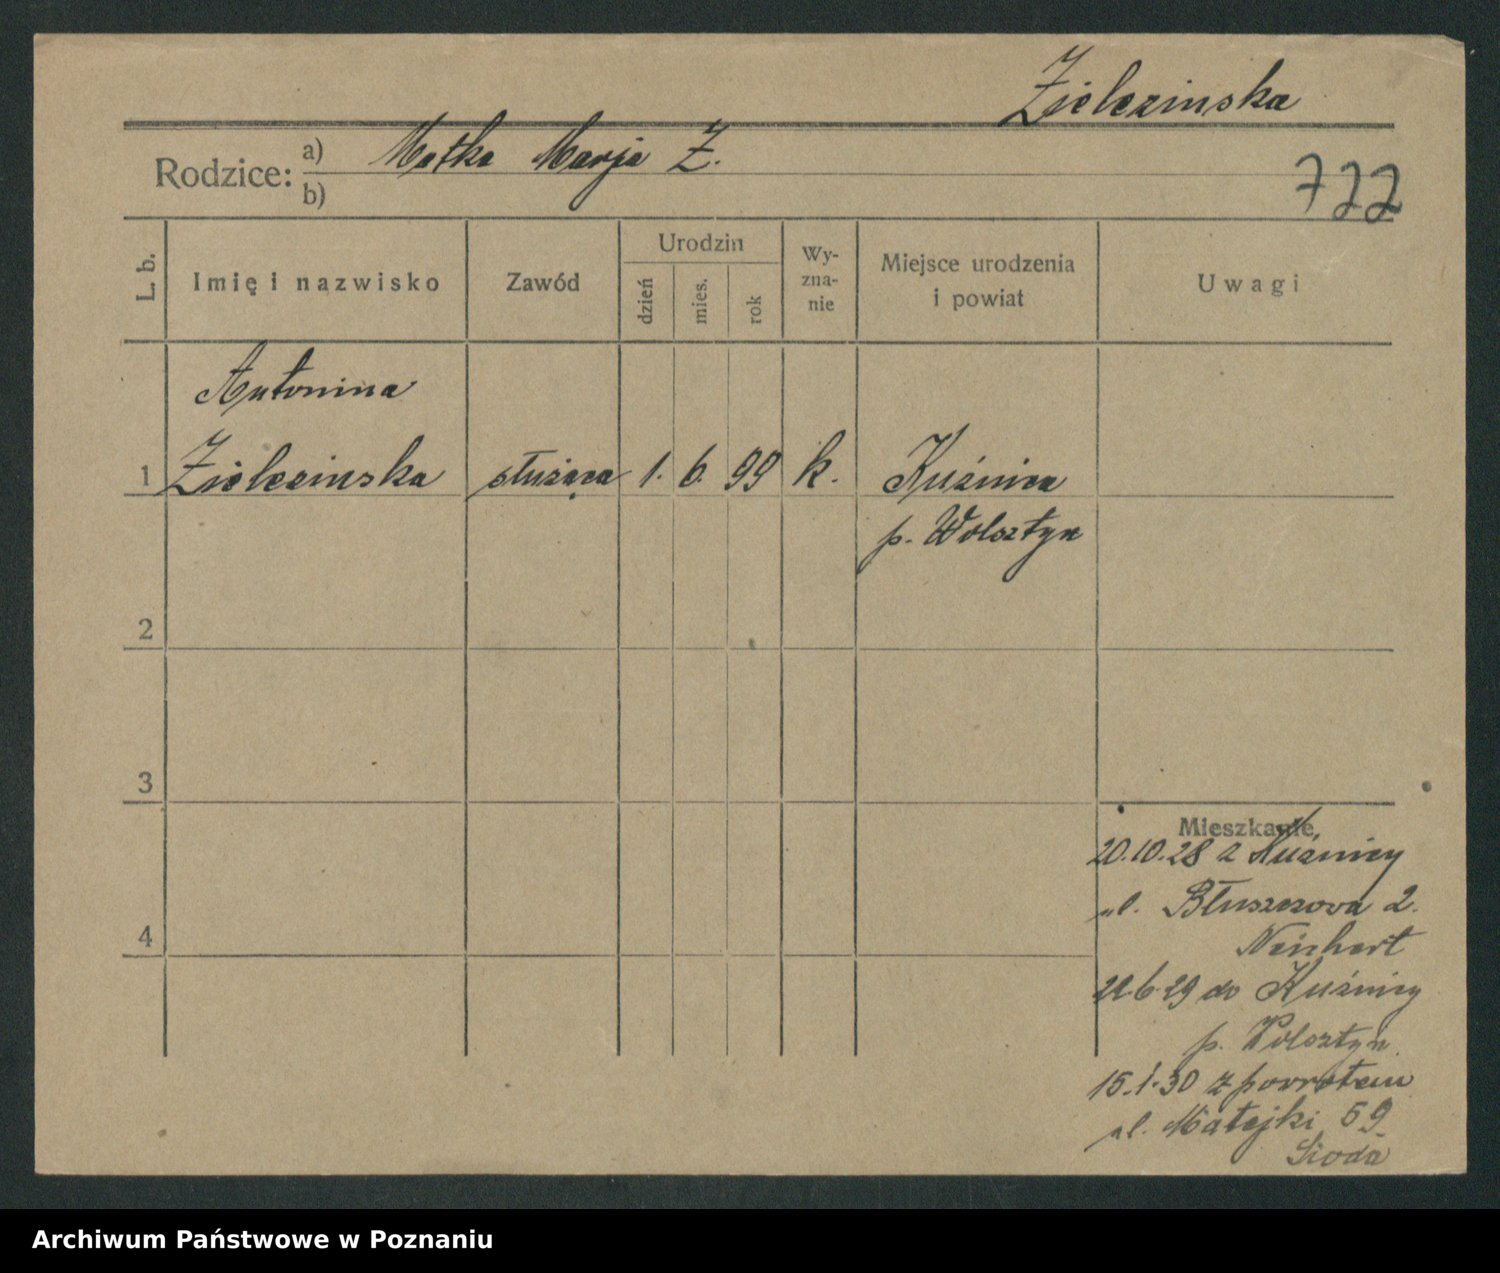 Zielezinska
Rodzice: a) Matka Marja Z.
b)
722
L. b.
Imię i nazwisko
Zawód
Urodzin
dzień
mies.
rok
Wy-
zna-
nie
Miejsce urodzenia
i powiat
Uwagi
Antonina
1 Zielezinska służąca 1. 6. 99 k. Kuźnica
p. Wolsztyn
2
3
4
Mieszkanie
20.10.28 z Kuźnicy
ul. Błuszczowa 2.
6.29 do Kuźnicy
p. Wolsztyn
15.1.30 z powrotem
ul. Matejki 59
Archiwum Państwowe w Poznaniu